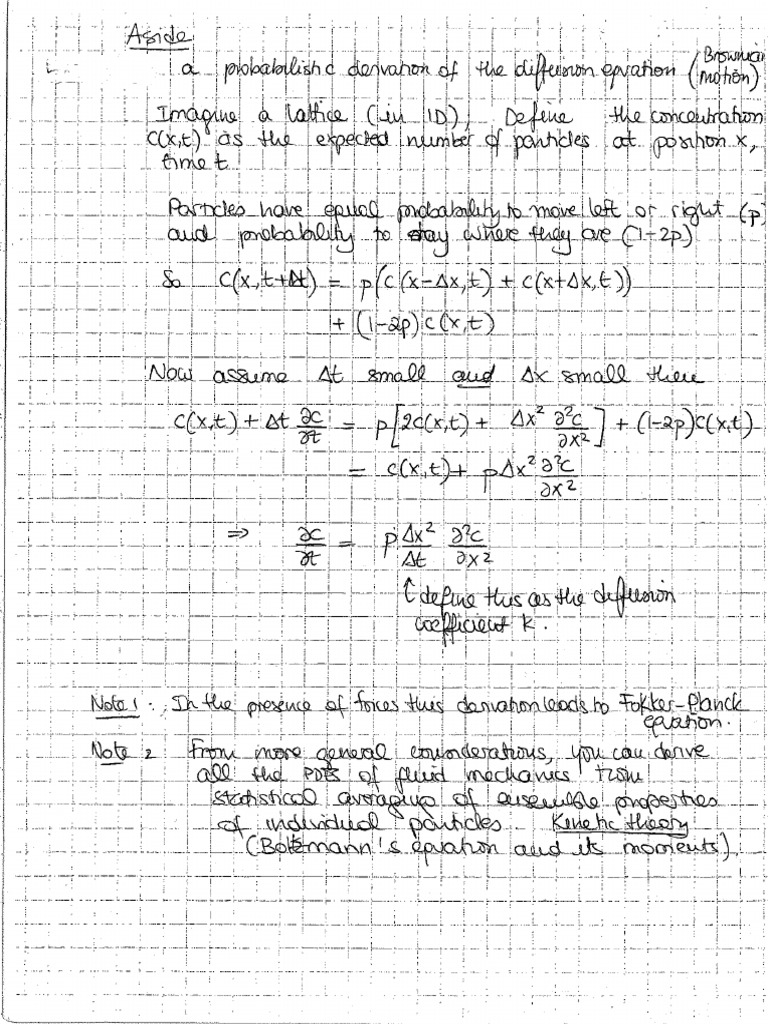 Aside
a probabilistic derivation of the diffusion equation (Brownian motion)
Imagine a lattice (in 1D), Define the concentration
C(x,t) as the expected number of particles at position x,
time t
Particles have equal probability to move left or right (p)
and probability to stay where they are (1-2p)
So C(x,t+Δt) = p(C(x-Δx,t) + C(x+Δx,t))
+ (1-2p)C(x,t)
Now assume Δt small and Δx small then
C(x,t) + Δt ∂C/∂t = p[2C(x,t) + Δx² ∂²C/∂x²] + (1-2p)C(x,t)
= C(x,t) + pΔx² ∂²C/∂x²
⇒ ∂C/∂t = p Δx²/Δt ∂²C/∂x²
↑ define this as the diffusion
coefficient K.
Note 1: In the presence of forces this derivation leads to Fokker-Planck
equation.
Note 2 From more general considerations, you can derive
all the PDEs of fluid mechanics from
statistical averaging of ensemble properties
of individual particles. Kinetic theory
(Boltzmann's equation and its moments).